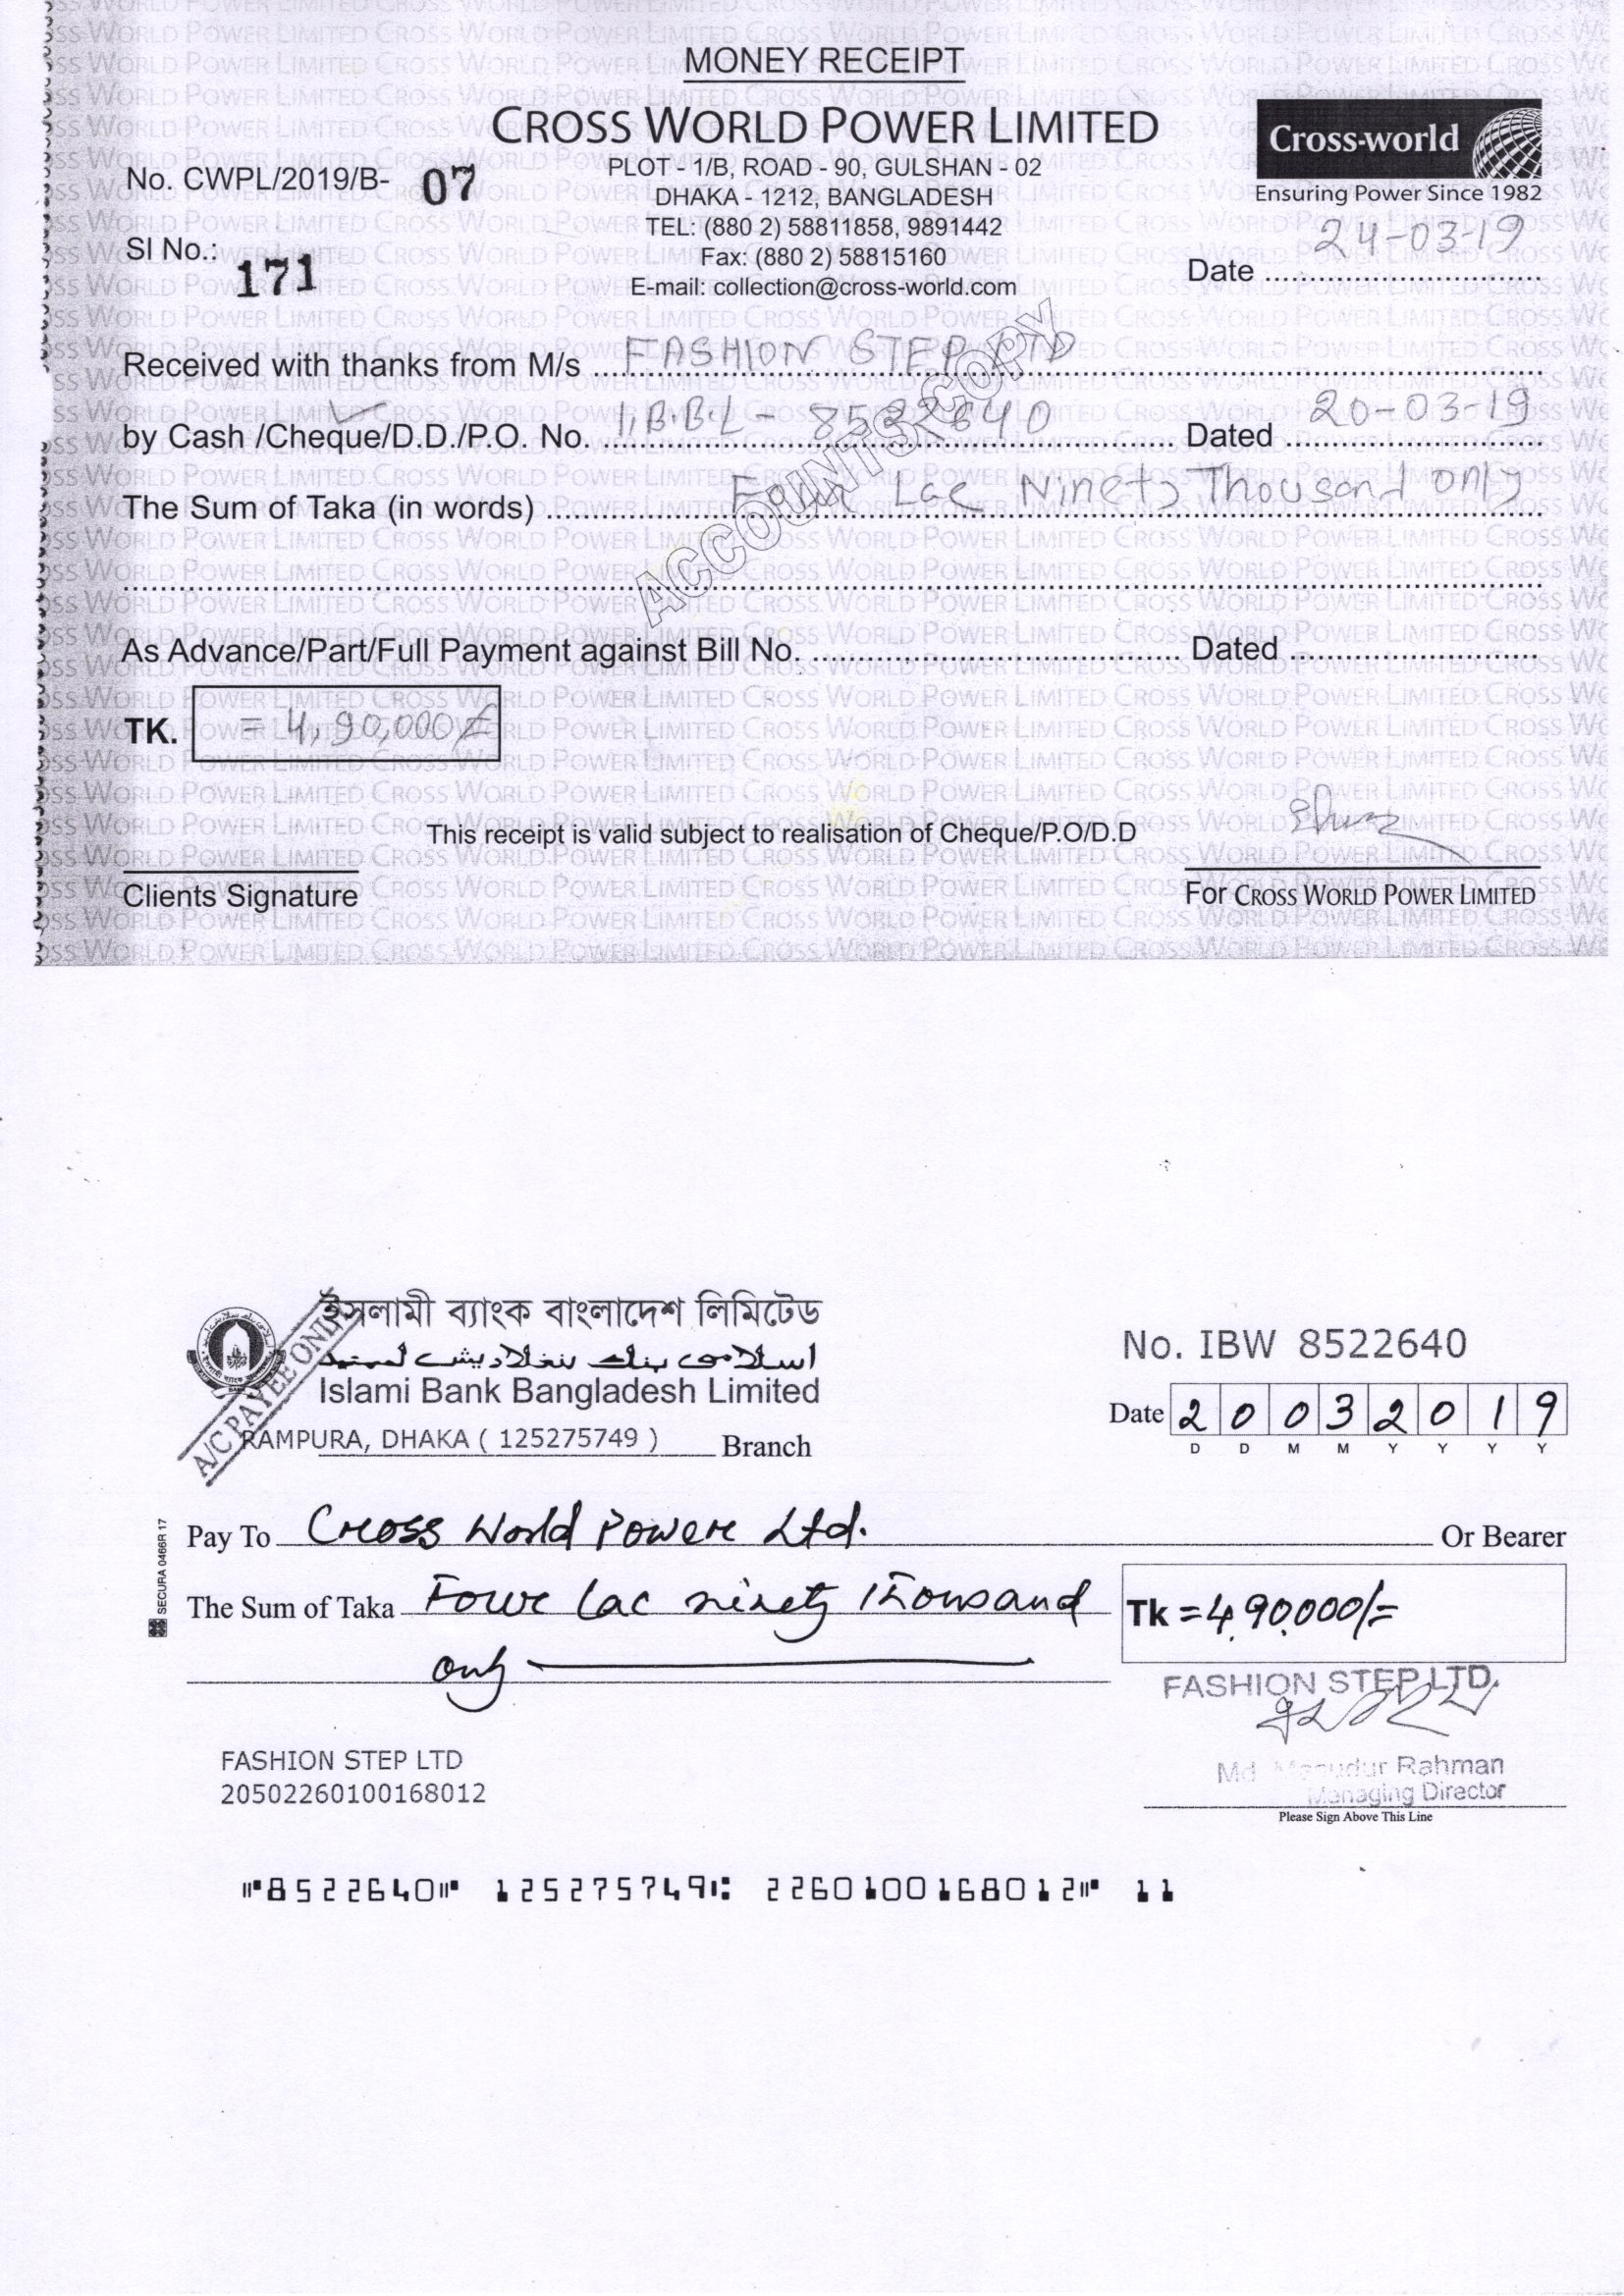 MONEY RECEIPT
CROSS WORLD POWER LIMITED
Cross-world
Ensuring Power Since 1982
No. CWPL/2019/B- 07
PLOT - 1/B, ROAD - 90, GULSHAN - 02
DHAKA - 1212, BANGLADESH
TEL: (880 2) 58811858, 9891442
Fax: (880 2) 58815160
E-mail: collection@cross-world.com
Sl No.: 171
Date 24-03-19
Received with thanks from M/s FASHION STEP LTD
by Cash /Cheque/D.D./P.O. No. I.B.B.L - Dated 20-03-19
The Sum of Taka (in words) Four Lac Ninety Thousand only
ACCOUNTS COPY
As Advance/Part/Full Payment against Bill No. Dated
TK. = 4,90,000/=
This receipt is valid subject to realisation of Cheque/P.O/D.D
Clients Signature
For CROSS WORLD POWER LIMITED
ইসলামী ব্যাংক বাংলাদেশ লিমিটেড
اسلامى بنك بنغلاديش لميتيد
Islami Bank Bangladesh Limited
RAMPURA, DHAKA ( 125275749 ) Branch
A/C PAYEE ONLY
No. IBW 8522640
Date 20032019
D D M M Y Y Y Y
Pay To Cross World Power Ltd. Or Bearer
The Sum of Taka Four lac ninety Thousand
only
Tk =4,90,000/=
SECURA 0466R 17
FASHION STEP LTD.
FASHION STEP LTD
20502260100168012
Md. Masudur Rahman
Managing Director
Please Sign Above This Line
8522640 125275749 2260100168012 11